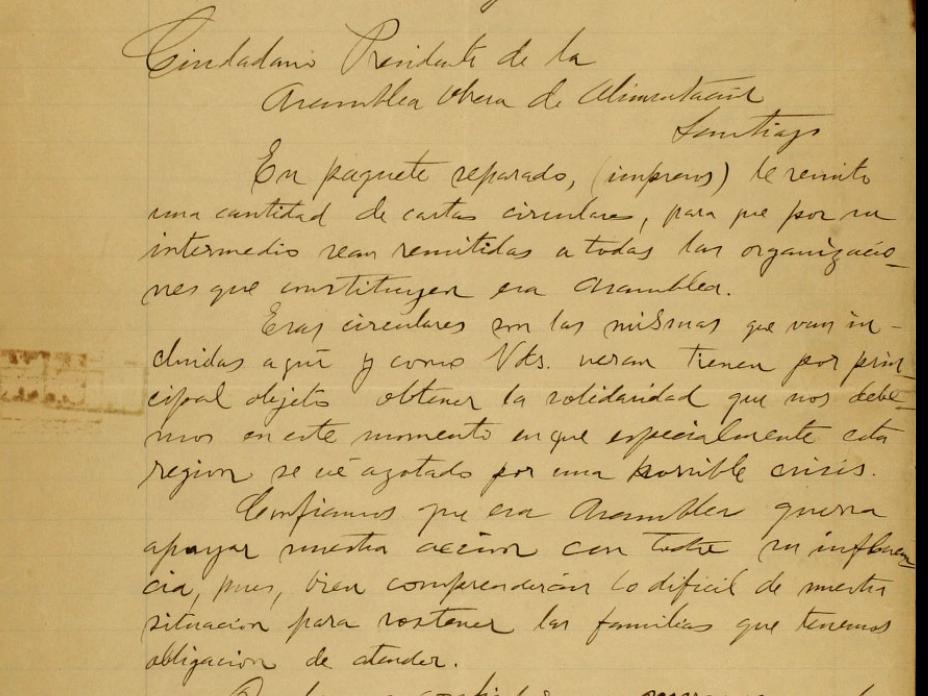 Ciudadano Presidente de la
Asamblea Obrera de Alimentación
Santiago
En paquete separado, (impresos) le remito
una cantidad de cartas circulares, para que por su
intermedio sean remitidas a todas las organizacio-
nes que constituyen esa Asamblea.
Esas circulares son las mismas que van in-
cluidas aquí y como Vds. veran tienen por prin-
cipal objeto obtener la solidaridad que nos debe-
mos en este momento en que especialmente esta
region se vé azotado por una horrible crisis.
Confiamos que esa Asamblea querra
apoyar nuestra accion con toda su influen-
cia, pues, bien comprenderán lo dificil de nuestra
situacion para sostener las familias que tenemos
obligacion de atender.